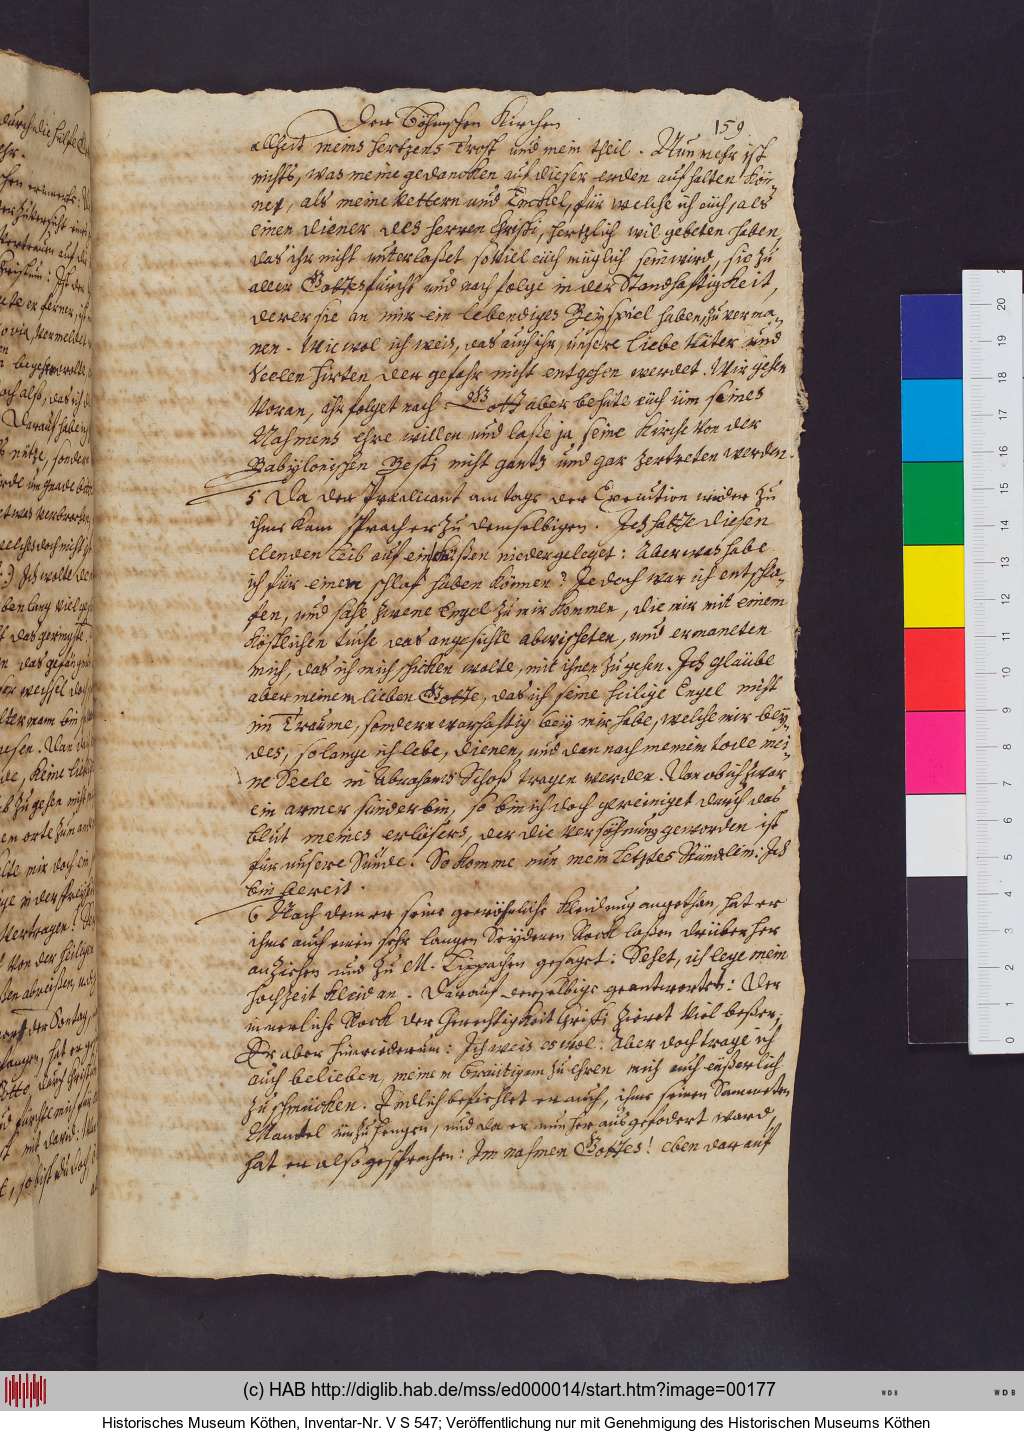 Der Böhmischen Kirchen
159
allzeit meins hertzens Trost und mein theil. Nunmehr ist
nichts, was meine gedancken auf dieser erden aufhalten kön-
ne, als meine Vettern und Enckel, für welche ich euch, als
einen diener des Herren Christi, hertzlich wil gebeten haben,
das ihr nicht unterlaßet soviel euch müglich sein wird, sie zu
aller Gottesfurcht und nachfolge in der Standhaftigkeit,
derer sie an mir ein lebendiges Beyspiel haben, zu verma-
nen. Wiewol ich weis, das auch ihr, unsere liebe Väter und
Seelen hirten der gefahr nicht entgehen werdet. Wir gehen
Voran, ihr folget nach. Gott aber behüte euch üm seines
Nahmens ehre willen und laße ja seine Kirche von der
Babylonischen Besti nicht gantz und gar zertreten werden.
5 Da der Praedicant am tage der Execution wider zu
ihme kam sprach er zu demselbigen. Ich hatte diesen
elenden leib auf ein küßen niedergeleget: Aber was habe
ich für einem schlaf haben können? Jedoch war ich entschla-
fen, und sahe zwene Engel zu mir kommen, die mir mit einem
köstlichen tuche das angesichte abwischeten, und ermaneten
mich, das ich mich schicken wolte, mit ihnen zu gehen. Ich gläube
aber meinem lieben Gotte, das ich seine heilige Engel nicht
im Traume, sondern warhaftig bey mir habe, welche mir bey-
des, so lange ich lebe, dienen, und dan nach meinem tode mei-
ne Seele in Abrahams Schoß tragen werden. Dan ob ich zwar
ein armer sünder bin, so bin ich doch gereiniget durch das
blut meines erlösers, der die versöhnung geworden ist
für unsere Sünde. So komme nun mein letztes Stündlein: Ich
bin bereit.
6 Nach dem er seine gewöhnliche kleidung angethan, hat er
ihme auch einen sehr langen Seydenen Rock laßen drüber her
anziehen und zu M. Lippachen gesaget: Sehet, ich lege mein
hochzeit kleid an. Darauf derselbige geantwortet: Der
innerliche Rock der Gerechtigkeit Christi zieret viel beßer.
Er aber hinwiederum: Ich weis es wol: Aber doch trage ich
auch belieben, meinem bräutigam zu ehren mich auch eüßerlich
zu schmücken. Endlich befiehlet er auch, ihme seinen Sammeten
Mantel ümzuhengen, und da er nun heraus gefodert ward,
hat er also gesprochen: Im nahmen Gottes! eben darauf
(c) HAB http://diglib.hab.de/mss/ed000014/start.htm?image=00177
Historisches Museum Köthen, Inventar-Nr. V S 547; Veröffentlichung nur mit Genehmigung des Historischen Museums Köthen